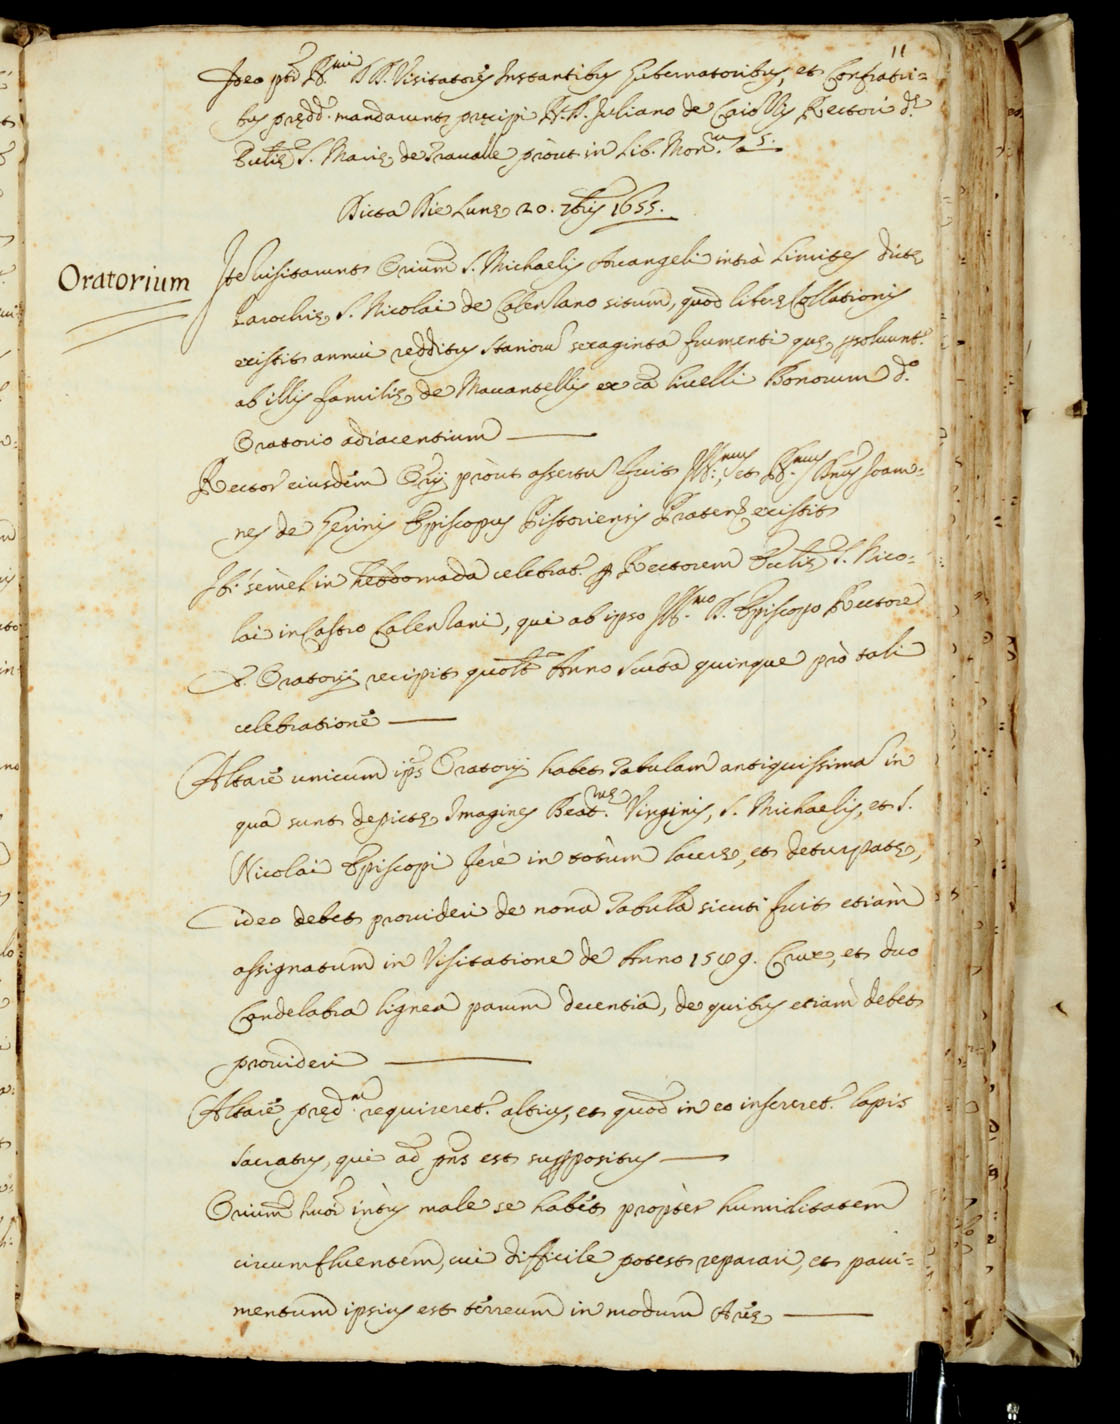 11
Ideo pti R.mi DD. Visitatores Instantibus Gubernatoribus, et Confratri=
bus prędd. mandarunt pręcipi R. D. Juliano de Rectori d.
Ecclię S. Marię de Traualle pròut in Lib. Mon.
Dicta Die Lunę 20. 7bris 1655.
Oratorium
Ite Visitarunt Orium S. Michaelis Arcangeli intrà Limites dictę
Parochię S. Nicolai de Calenzano situm, quod liberę Collationis
existit annui redditus starior sexaginta frumenti quę psoluunt.
ab illis familię de Mauantellis ex ca liuelli Bonorum d.o
Oratorio adiacentium
Rector eiusdem Orij pròut assertu fuit Ill.mus, et R.mus Dnus Joan=
nes de Gerinis Episcopus Pistoriensis Praten existit
Ibi semel in hebdomada celebrat. p Rectorem Ecclię S. Nico=
lai in Castro Calenzani, qui ab ipso Ill.mo D. Episcopo Rectore
d. Oratorij recipit quolt Anno Scuta quinque prò tali
celebratione
Altare unicum ips Oratorij habet Tabulam antiquissima in
qua sunt depictę Imagines Beat.mę Virginis, S. Michaelis, et S.
Nicolai Episcopi ferè in totum lacerę, et deturpatę,
ideo debet prouideri de noua Tabula sicuti fuit etiàm
assignatum in Visitatione de Anno 1589. Crux, et duo
Candelabra lignea parum decentia, de quibus etiam debet
prouideri
Altare pręd.m requireret. altius, et quod in eo insereret. lapis
sacratus, qui ad pns est suppositus
Orium huoi intus male se habet propter humiditatem
circumfluentem, cui difficile potest reparari, et paui=
mentum ipsius est terreum in modum Areę